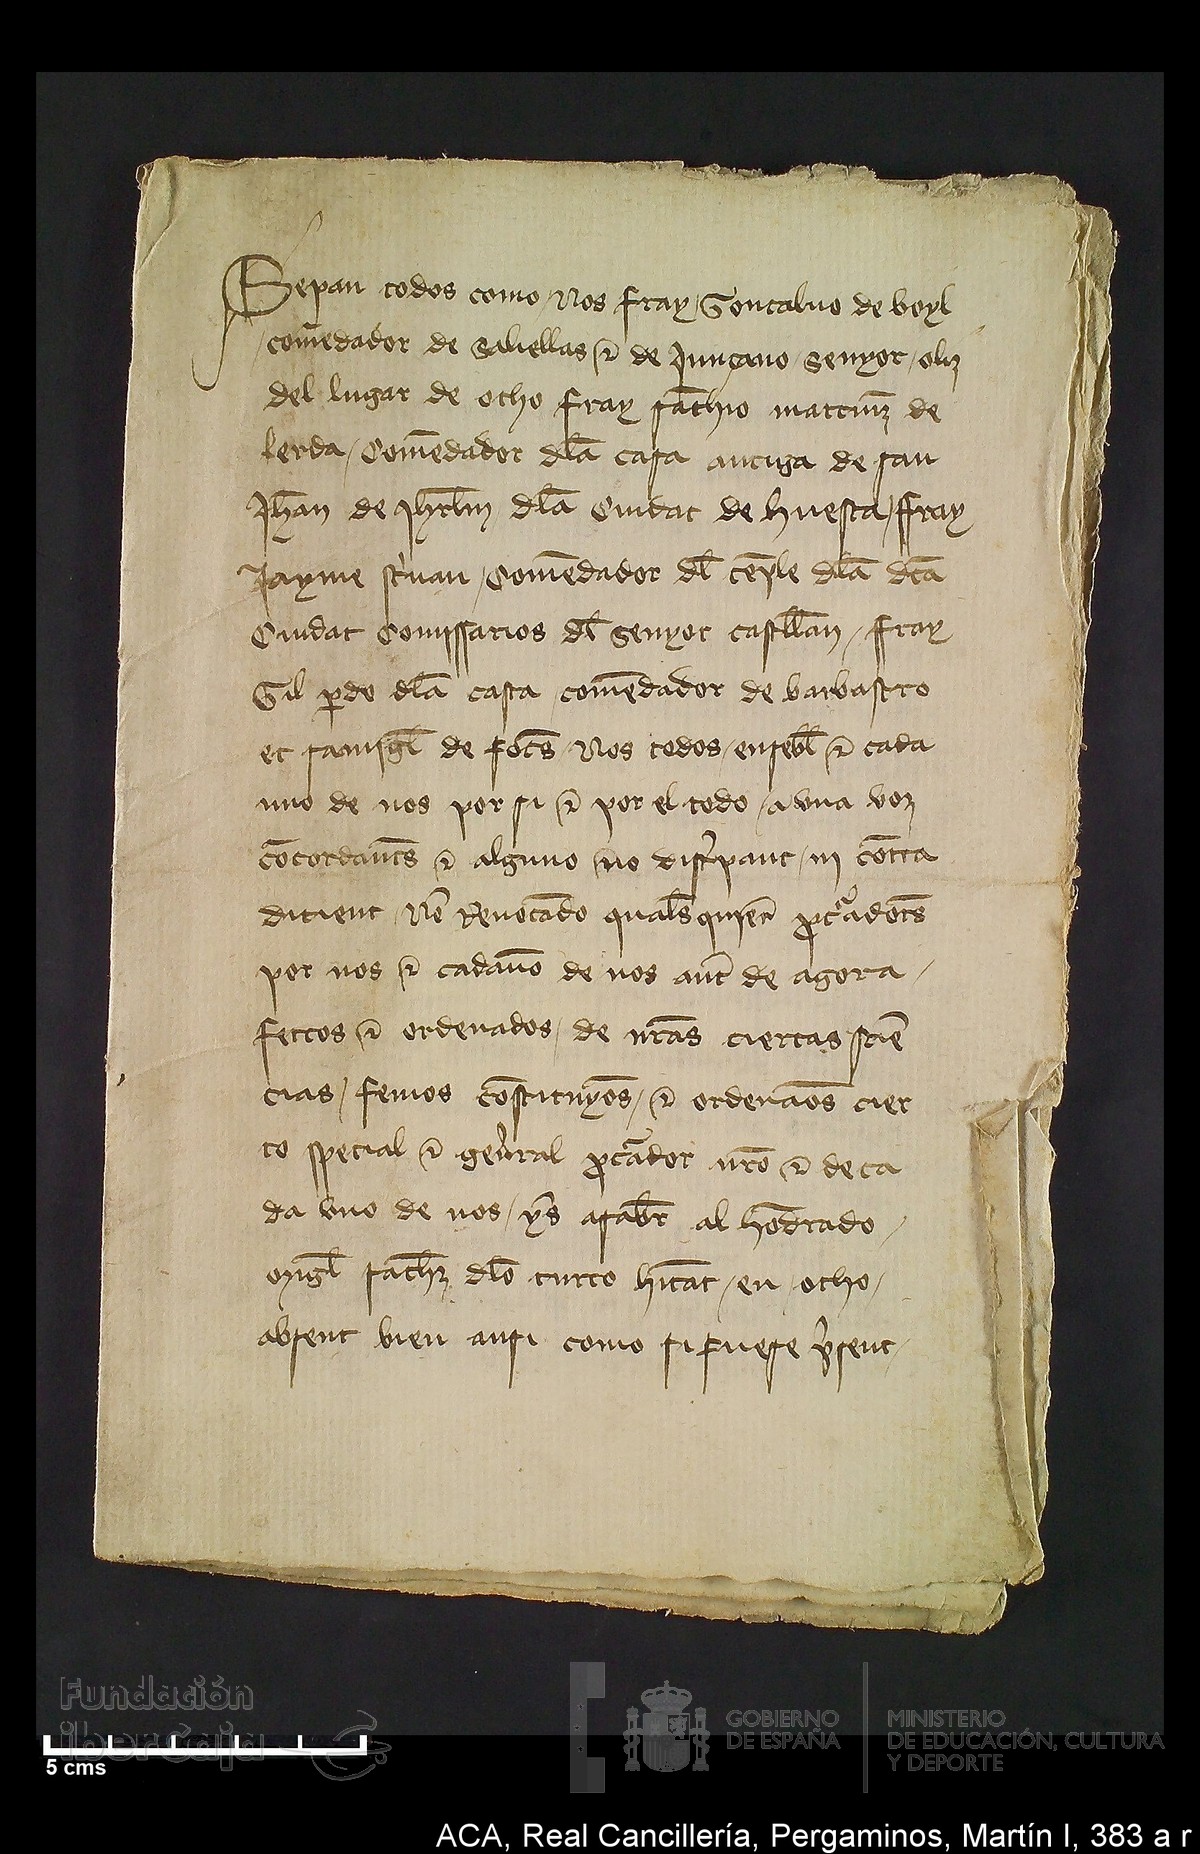 Sepan todos como Nos fray Goncaluo de boyl
comēdador de Saliellas ⁊ de Junçano senyor
del lugar de ocho fray sācho martinz de
lerda Comēdador dla casa antiga de san
Jhan de Jhrlm dla Ciudat de huesca ffray
Jayme Comēdador dl tēple dla dca
Ciudat Comissarios dl Senyor castllan fray
Gil pdo dla casta comēdador de barbastro
et de focs Nos todos ensebl ⁊ cada
uno de nos por si ⁊ por el todo a vna voz
cōcordants ⁊ alguno no discpant ni cōtra
dizient Nō Reuocādo quals quiere pcuradors
por nos ⁊ cadauo de nos ant de agora
feytos ⁊ ordenados de nras ciertas sciē
cias femos cōstituymos ⁊ ordenamos cier
to special ⁊ general pcurador nro ⁊ de ca
da vno de nos yes asaber al hōdrado
sāchz dlo curto hitāt en ocho
absent bien ansi como si fuese psent
Fundación
iberCaja
GOBIERNO
DE ESPAÑA
MINISTERIO
DE EDUCACIÓN, CULTURA
Y DEPORTE
5 cms
ACA, Real Cancillería, Pergaminos, Martín I, 383 a r